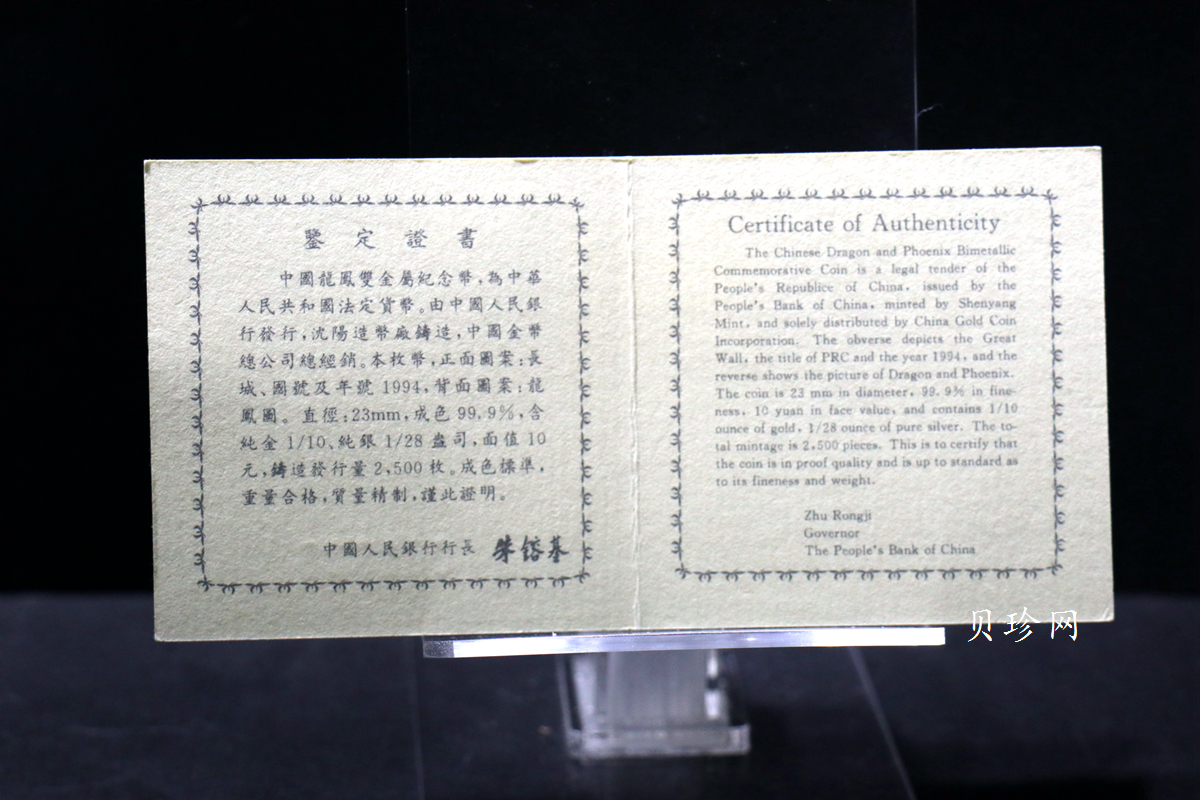 鑒定證書
中國龍鳳雙金屬紀念幣，為中華
人民共和國法定貨幣。由中國人民銀
行發行，沈陽造幣廠鑄造，中國金幣
總公司總經銷。本枚幣，正面圖案：長
城、國號及年號1994，背面圖案：龍
鳳圖。直徑：23mm，成色99.9%，含
純金1/10、純銀1/28盎司，面值10
元，鑄造發行量2,500枚。成色標準，
重量合格，質量精制，謹此證明。
中國人民銀行行長 朱鎔基
Certificate of Authenticity
The Chinese Dragon and Phoenix Bimetallic
Commemorative Coin is a legal tender of the
People's Republice of China, issued by the
People's Bank of China, minted by Shenyang
Mint, and solely distributed by China Gold Coin
Incorporation. The obverse depicts the Great
Wall, the title of PRC and the year 1994, and the
reverse shows the picture of Dragon and Phoenix.
The coin is 23 mm in diameter, 99.9% in fine-
ness, 10 yuan in face value, and contains 1/10
ounce of gold, 1/28 ounce of pure silver. The to-
tal mintage is 2,500 pieces. This is to certify that
the coin is in proof quality and is up to standard as
to its fineness and weight.
Zhu Rongji
Governor
The People's Bank of China
贝珍网